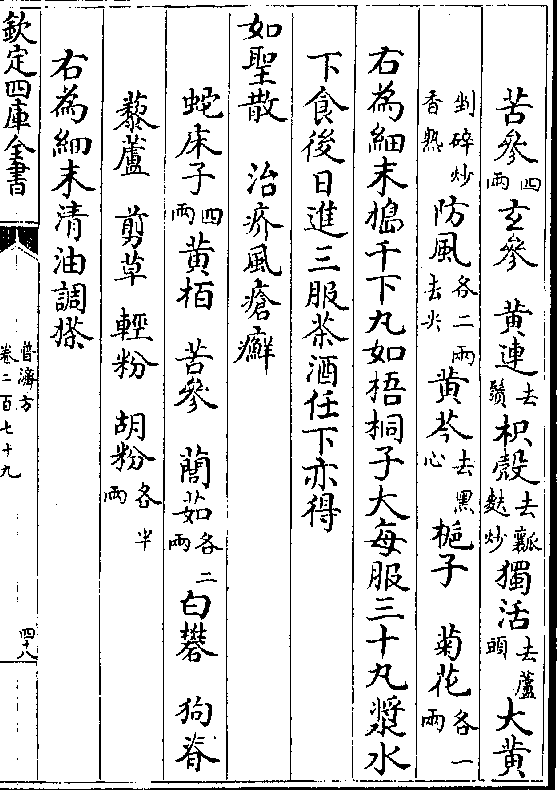 苦參四兩玄參 黄連去鬚枳殼去瓤麩炒獨活去蘆頭大黄
剉碎炒香熟防風各二兩去尖黄芩去黑心梔子 菊花各一兩
右為細末搗千下丸如梧桐子大每服三十丸漿水
下食後日進三服茶酒任下亦得
如聖散 治疥風瘡癬
蛇床子四兩黄栢 苦參 䕡茹各二兩白礬 狗脊
藜蘆 剪草 輕粉 胡粉各半兩
右為細末清油調搽
欽定四庫全書
普濟方
卷二百七十九
四十八